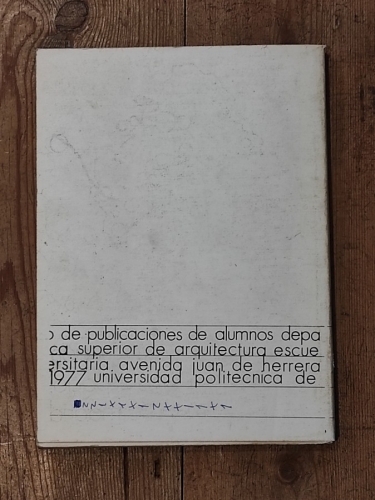 o de publicaciones de alumnos depa
ca superior de arquitectura escue
ersitaria avenida juan de herrera
1977 universidad politecnica de